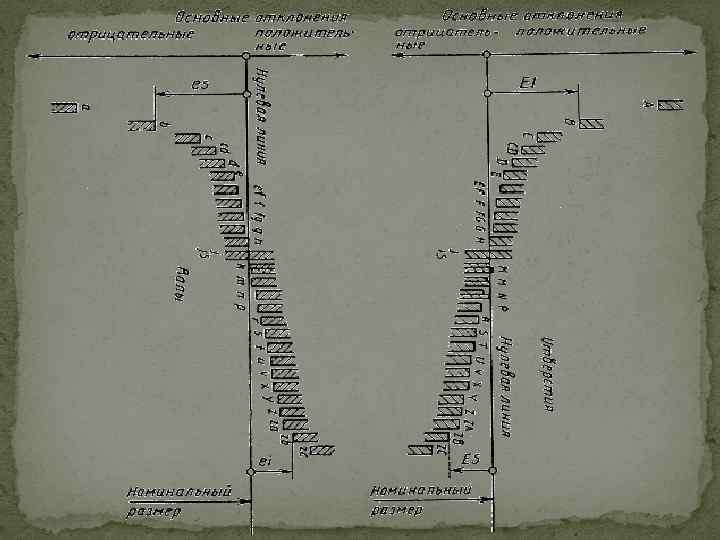 Основные отклонения
отрицательные
положитель-
ные
Основные отклонения
отрицатель-
ные
положительные
es
EI
Нулевая линия
a
b
c
cd
d
e
ef f fg g h
j
js
k m n p
r s t u v x y z za
zb
zc
Валы
A
B
C
CD
D
E
EF F FG G H
J
JS
K M N P
R S T U V X Y Z ZA
ZB
ZC
Отверстия
Нулевая линия
ei
ES
Номинальный
размер
Номинальный
размер